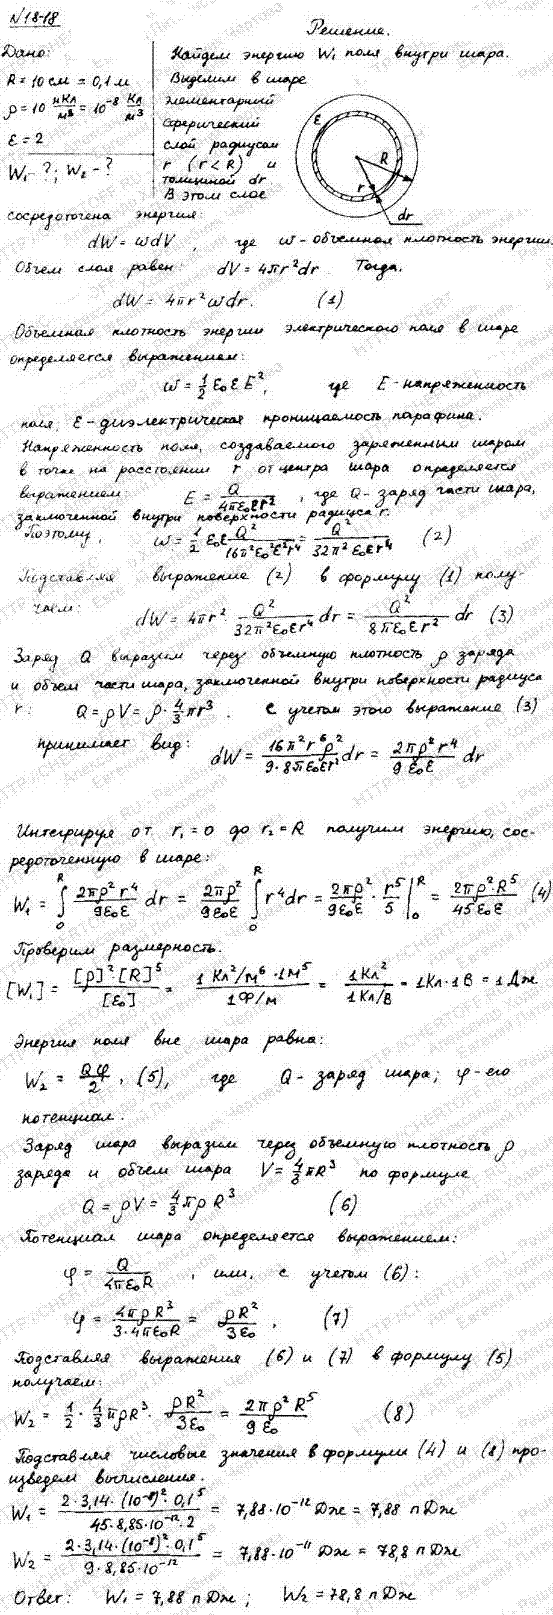 №18-18
Решение.
Дано:
R = 10 см = 0,1 м
ρ = 10 нКл/м³ = 10⁻⁸ Кл/м³
ε = 2
W₁ - ?; W₂ - ?
Найдем энергию W₁ поля внутри шара.
Выделим в шаре
элементарный
сферический
слой радиусом
r (r < R) и
толщиной dr
В этом слое
ε R r dr
сосредоточена энергия:
dW = ωdV, где ω - объемная плотность энергии.
Объем слоя равен: dV = 4πr²dr. Тогда,
dW = 4πr²ωdr. (1)
Объемная плотность энергии электрического поля в шаре
определяется выражением:
ω = 1/2 ε₀εE², где E - напряженность
поля, ε - диэлектрическая проницаемость парафина.
Напряженность поля, создаваемого заряженным шаром
в точке на расстоянии r от центра шара определяется
выражением: E = Q/4πε₀εr², где Q - заряд части шара,
заключенной внутри поверхности радиуса r.
Поэтому, ω = 1/2 ε₀ε Q²/16π²ε₀²ε²r⁴ = Q²/32π²ε₀εr⁴ (2)
Подставляя выражение (2) в формулу (1) полу-
чаем: dW = 4πr² · Q²/32π²ε₀εr⁴ dr = Q²/8πε₀εr² dr (3)
Заряд Q выразим через объемную плотность ρ заряда
и объем части шара, заключенной внутри поверхности радиуса
r: Q = ρV = ρ · 4/3 πr³. С учетом этого выражение (3)
принимает вид: dW = 16π²r⁶ρ²/9·8πε₀εr² dr = 2πρ²r⁴/9ε₀ε dr
Интегрируя от r₁ = 0 до r₂ = R получим энергию, сос-
редоточенную в шаре:
W₁ = ∫₀ᴿ 2πρ²r⁴/9ε₀ε dr = 2πρ²/9ε₀ε ∫₀ᴿ r⁴dr = 2πρ²/9ε₀ε · r⁵/5 |₀ᴿ = 2πρ²·R⁵/45ε₀ε (4)
Проверим размерность.
[W₁] = [ρ]²[R]⁵/[ε₀] = 1 Кл²/м⁶ · 1м⁵/1Ф/м = 1Кл²/1Кл/В = 1Кл·1В = 1 Дж
Энергия поля вне шара равна:
W₂ = Qφ/2, (5), где Q - заряд шара; φ - его
потенциал.
Заряд шара выразим через объемную плотность ρ
заряда и объем шара V = 4/3 πR³ по формуле
Q = ρV = 4/3 πρR³ (6)
Потенциал шара определяется выражением:
φ = Q/4πε₀R, или, с учетом (6):
φ = 4πρR³/3·4πε₀R = ρR²/3ε₀, (7)
Подставляя выражения (6) и (7) в формулу (5)
получаем:
W₂ = 1/2 · 4/3 πρR³ · ρR²/3ε₀ = 2πρ²R⁵/9ε₀ (8)
Подставляя числовые значения в формулы (4) и (8) про-
изведем вычисления.
W₁ = 2·3,14·(10⁻⁸)²·0,1⁵/45·8,85·10⁻¹²·2 = 7,88·10⁻¹² Дж = 7,88 пДж
W₂ = 2·3,14·(10⁻⁸)²·0,1⁵/9·8,85·10⁻¹² = 7,88·10⁻¹¹ Дж = 78,8 пДж
Ответ: W₁ = 7,88 пДж; W₂ = 78,8 пДж